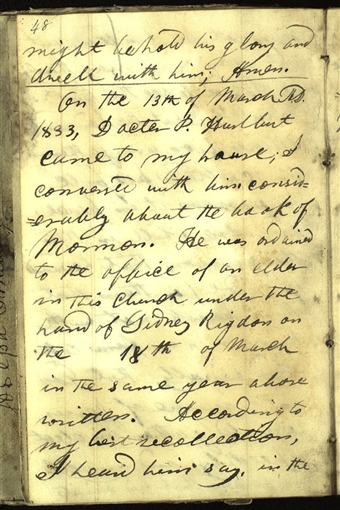 48
might behold his glory and
dwell with him; Amen.
On the 13th of March AD.
1833, Docter P. Hurlburt
came to my house; I
conversed with him consid=
=erably about the book of
Mormon. He was ordained
to the office of an elder
in this church under the
hand of Sidney Rigdon on
the 18th of March
in the same year above
written. According to
my best recollection,
I heard him say, in the